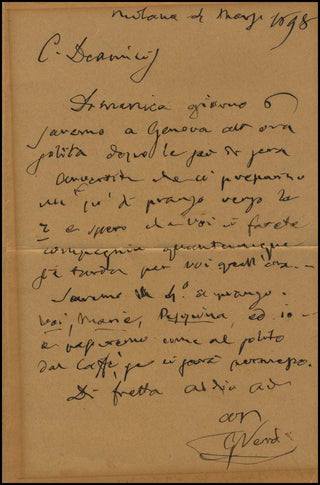 Milano 4 Marzo 1898
C. Deamicis
Domenica giorno 6
saremo a Genova all'ora
solita dopo le per di sera
che ci preparino
un pò di pranzo verso le
7 e spero che Voi ci farete
compagnia quantunque
sia tarda per voi quell'ora
Saremo in 4 a pranzo.
Voi, Maria, Peppina, ed io
e saremo come al solito
dal Caffè, se ci sarà permesso.
Di fretta addio ad
G Verdi